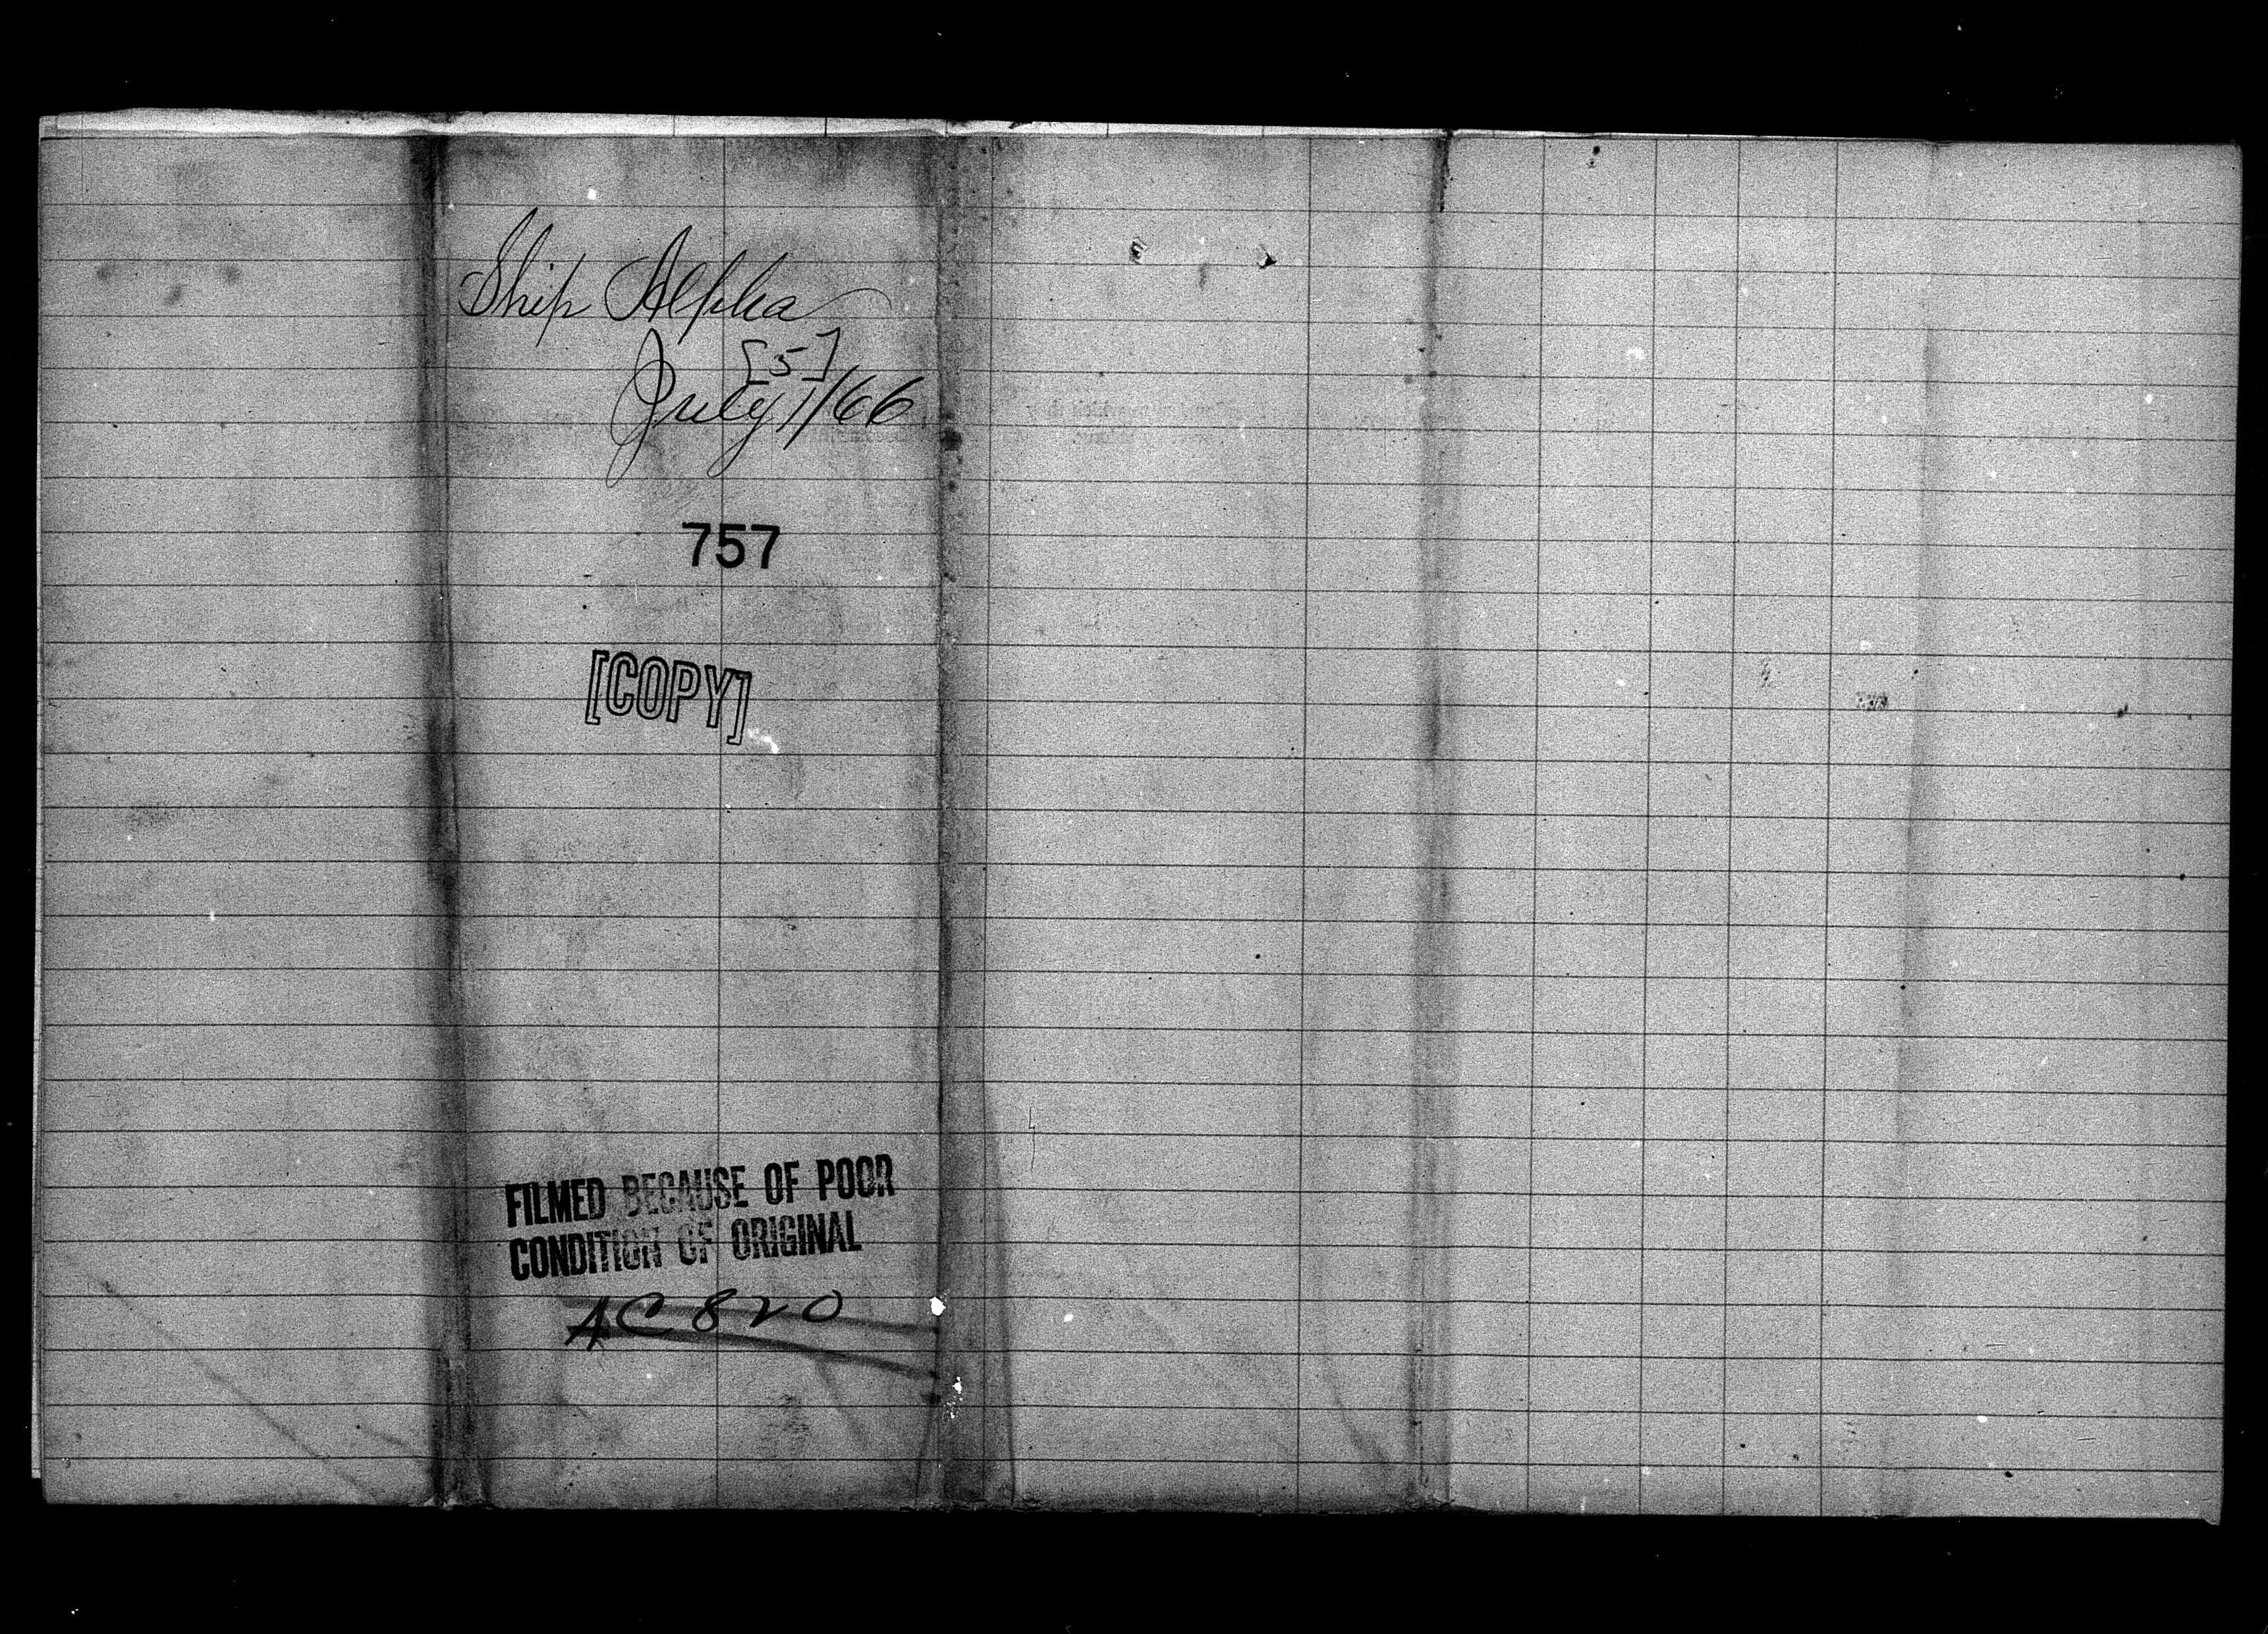 Ship Alpha
[5]
July 1/66
757
[COPY]
FILMED BECAUSE OF POOR
CONDITION OF ORIGINAL
AC 820